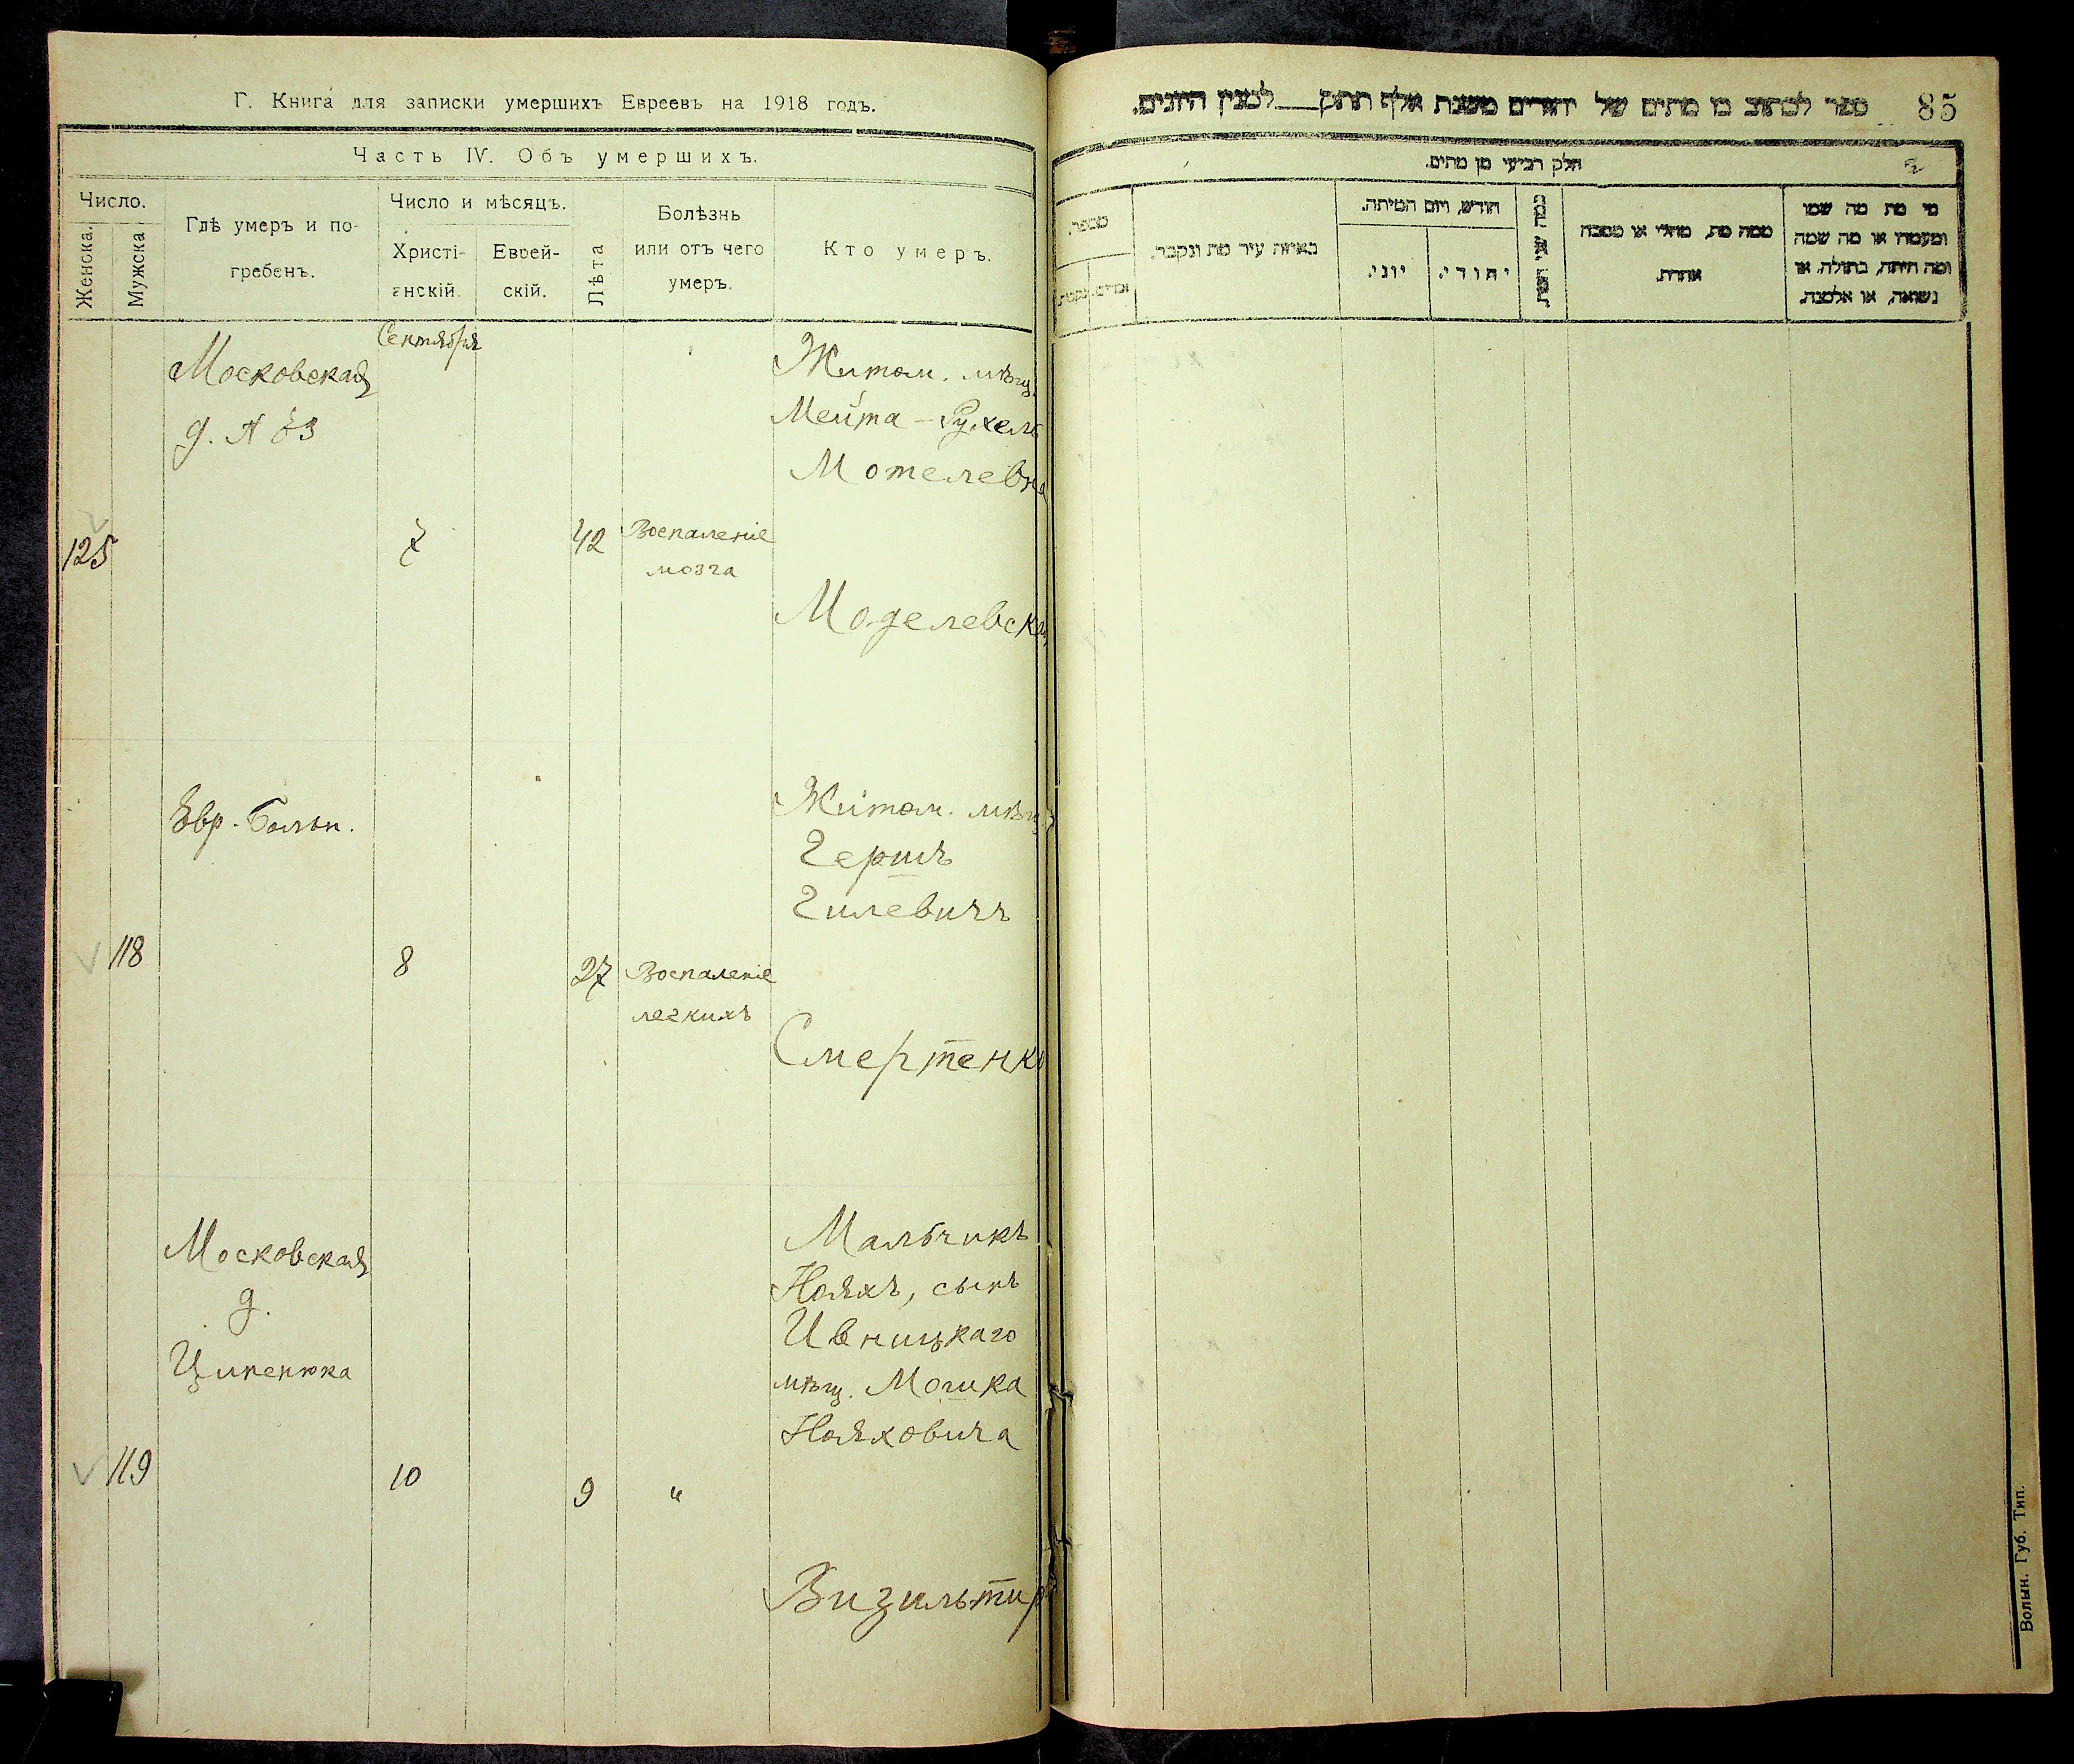 Г. Книга для записки умершихъ Евреевъ на 1918 годъ.
Часть IV. Объ умершихъ.
Число.
Женска.
Мужска
Гдѣ умеръ и по-
гребенъ.
Число и мѣсяцъ.
Христі-
анскій.
Еврей-
скій.
Лѣта
Болѣзнь
или отъ чего
умеръ.
Кто умеръ.
Сентября
Московская
д. № 83
125
7
42
Воспаленіе
мозга
Житом. мѣщ.
Мейта-Рухель
Мотелевна
Моделевская
Евр. Больн.
118
8
27
Воспаленіе
легкихъ
Житом. мѣщ.
Гершъ
Гилевичъ
Смертенко
Московская
д.
Ципенюка
119
10
9
"
Мальчикъ
Нояхъ, сынъ
Ивницкаго
мѣщ. Мошка
Нояховича
Визильтир
ספר לכתוב בו מתים של יהודים משנת אלף תתק למנין היונים.
85
חלק רביעי מן מתים.
מספר.
זכרים.
נקבות.
באיזה עיר מת ונקבר.
חודש, ויום המיתה.
יוני.
יהודי.
כמה שני חייו
ממה מת, מחלי או מסבה
אחרת.
מי מת מה שמו
ומעמדו או מה שמה
ומה היתה, בתולה, או
נשואה, או אלמנה.
Волын. Губ. Тип.